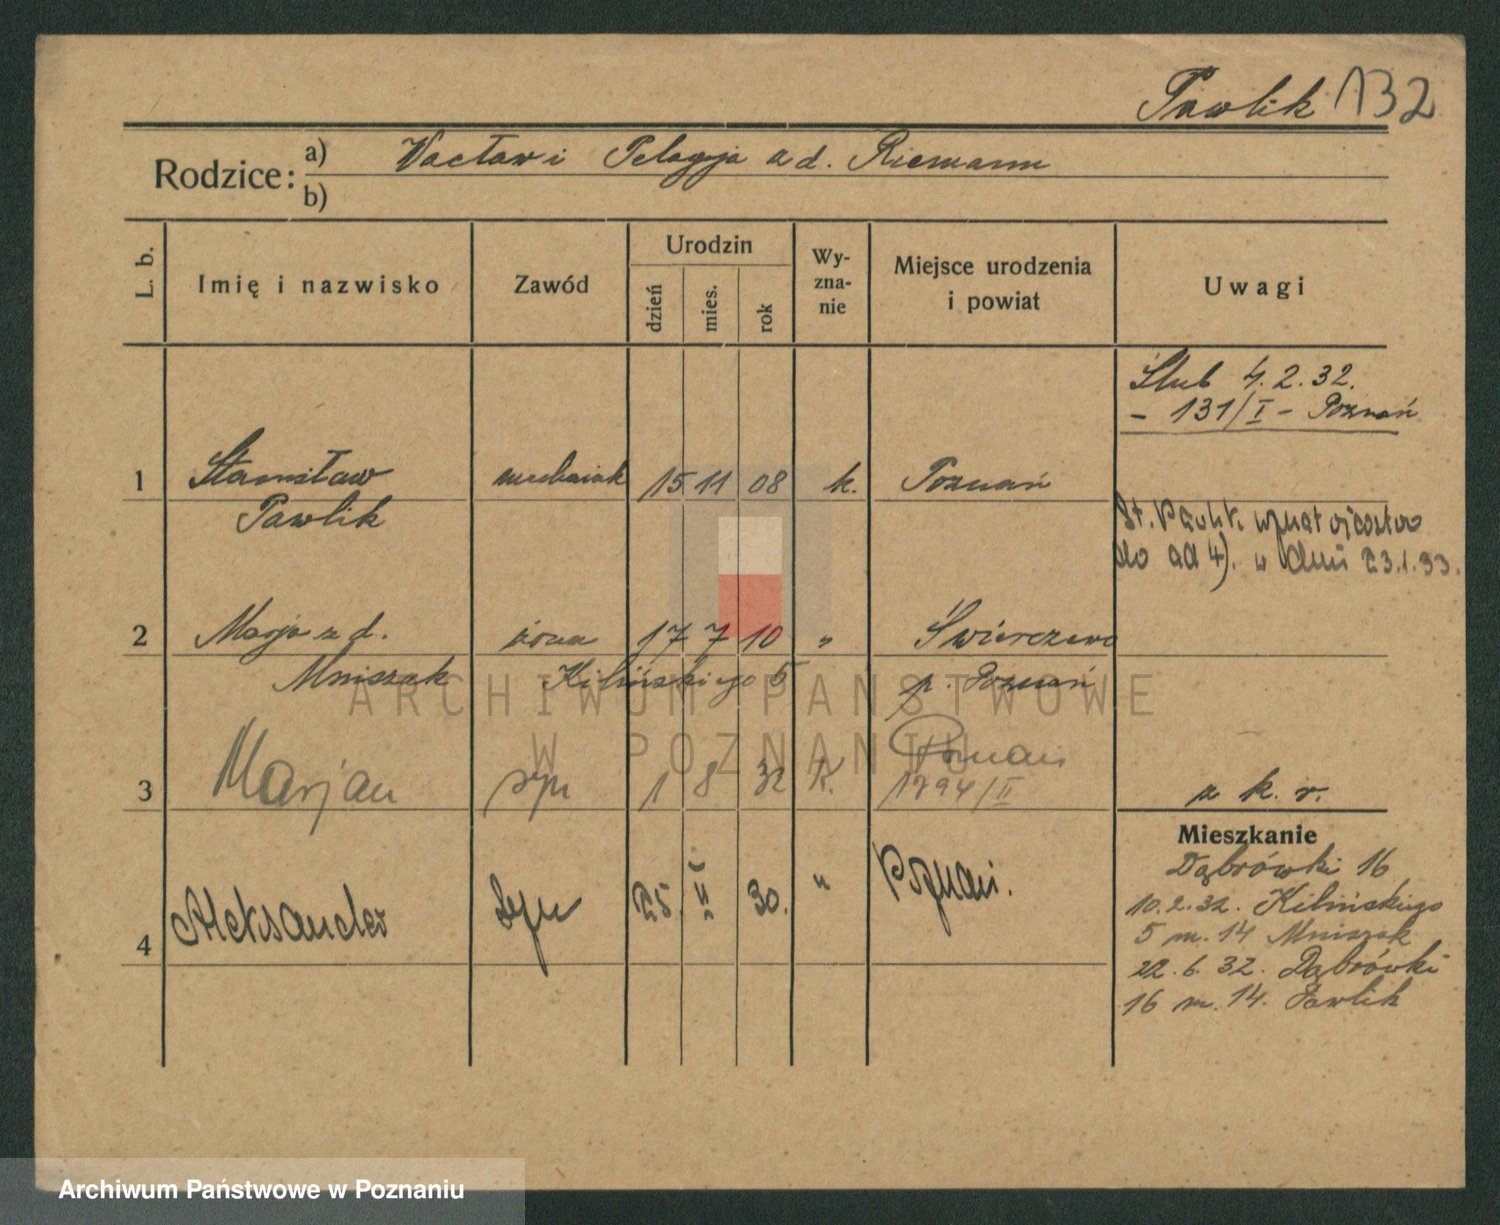 Pawlik 132
Rodzice: a) Wacław i Pelagja z d. Riemann
b)
L. b. Imię i nazwisko Zawód Urodzin dzień mies. rok Wy-zna-nie Miejsce urodzenia i powiat Uwagi
Ślub 4.2.32.
- 131/I - Poznań
1 Stanisław mechanik 15 11 08 k. Poznań
Pawlik
St. Pawlik uznał ojcostwo
do ad 4). w dniu 23.1.33.
2 Marja z d. żona 17 7 10 " Świerczewo
Mniszak Kilińskiego 5 p. Poznań
3 Marjan syn 1 8 32 k. Poznań
1794/II
z k. r.
Mieszkanie
4 Aleksander syn 25. II 30. " Poznań.
Dąbrówki 16
10.2.32. Kilińskiego
5 m. 14 Mniszak
22.6.32. Dąbrówki
16 m. 14. Pawlik
ARCHIWUM PAŃSTWOWE
W POZNANIU
Archiwum Państwowe w Poznaniu